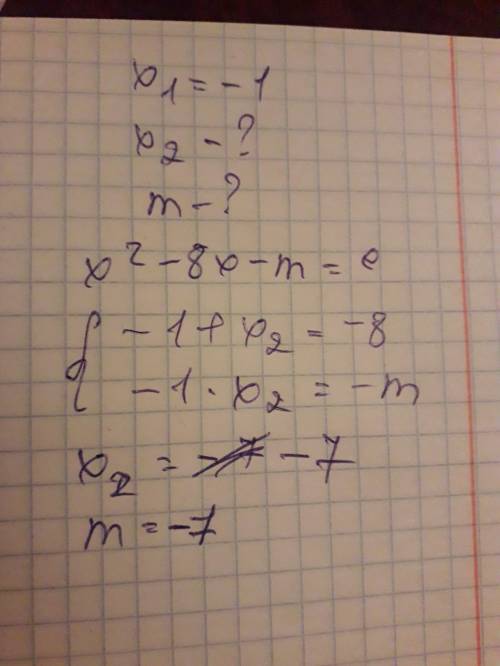 x₁ = -1
x₂ - ?
m - ?
x² - 8x - m = 0
{ -1 + x₂ = -8
-1 · x₂ = -m
x₂ = -7
m = -7